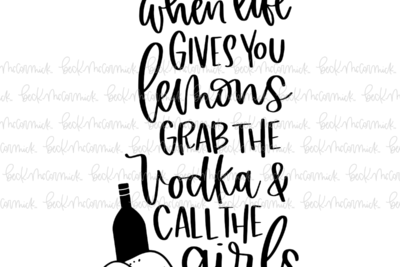 when life
GIVES YOU
lemons
GRAB THE
Vodka &
CALL THE
girls